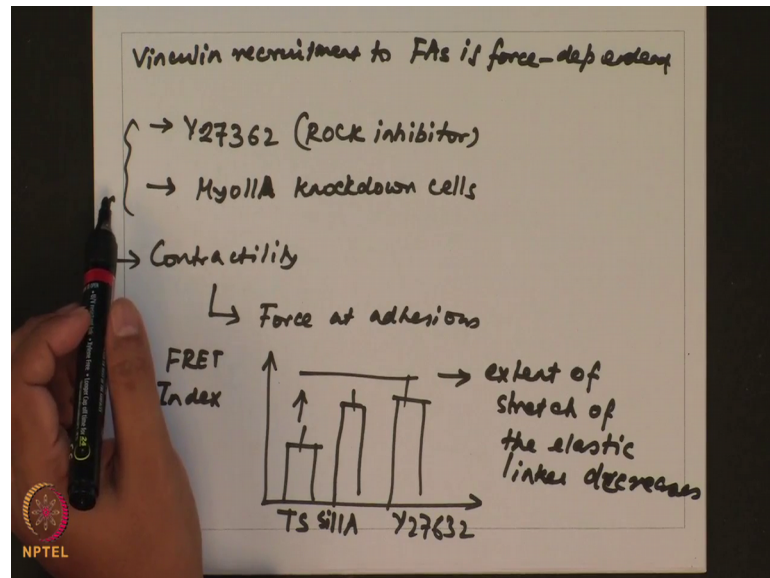 Vinculin recruitment to FAs is force-dependent
→ Y27362 (ROCK inhibitor)
→ MyoIIA knockdown cells
→ Contractility
↳ Force at adhesions
FRET
Index
→ extent of
stretch of
the elastic
linker decreases
TS siIIA Y27632
NPTEL